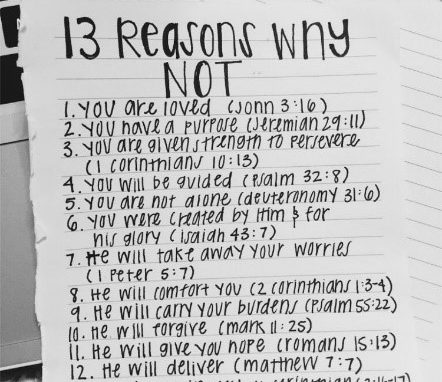 13 Reasons Why
NOT
1. You are loved (John 3:16)
2. You have a purpose (Jeremiah 29:11)
3. You are given strength to persevere
(1 Corinthians 10:13)
4. You will be guided (Psalm 32:8)
5. You are not alone (Deuteronomy 31:6)
6. You were created by Him & for
his glory (Isaiah 43:7)
7. He will take away your worries
(1 Peter 5:7)
8. He will comfort you (2 Corinthians 1:3-4)
9. He will carry your burdens (Psalm 55:22)
10. He will forgive (Mark 11:25)
11. He will give you hope (Romans 15:13)
12. He will deliver (Matthew 7:7)